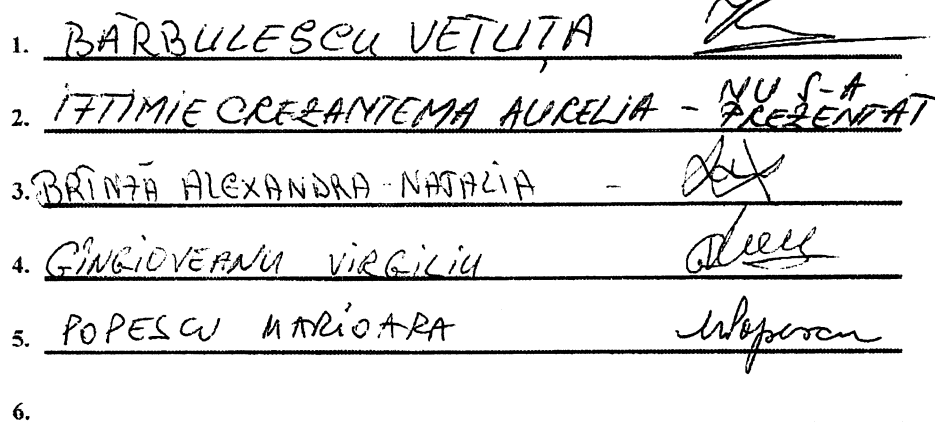 1. BĂRBULESCU VETUȚA
2. IFTIMIE CREZANTEMA AURELIA - NU S-A PREZENTAT
3. BRÎNZĂ ALEXANDRA-NATALIA -
4. GÎNGIOVEANU VIRGILIU
5. POPESCU MARIOARA MPopescu
6.